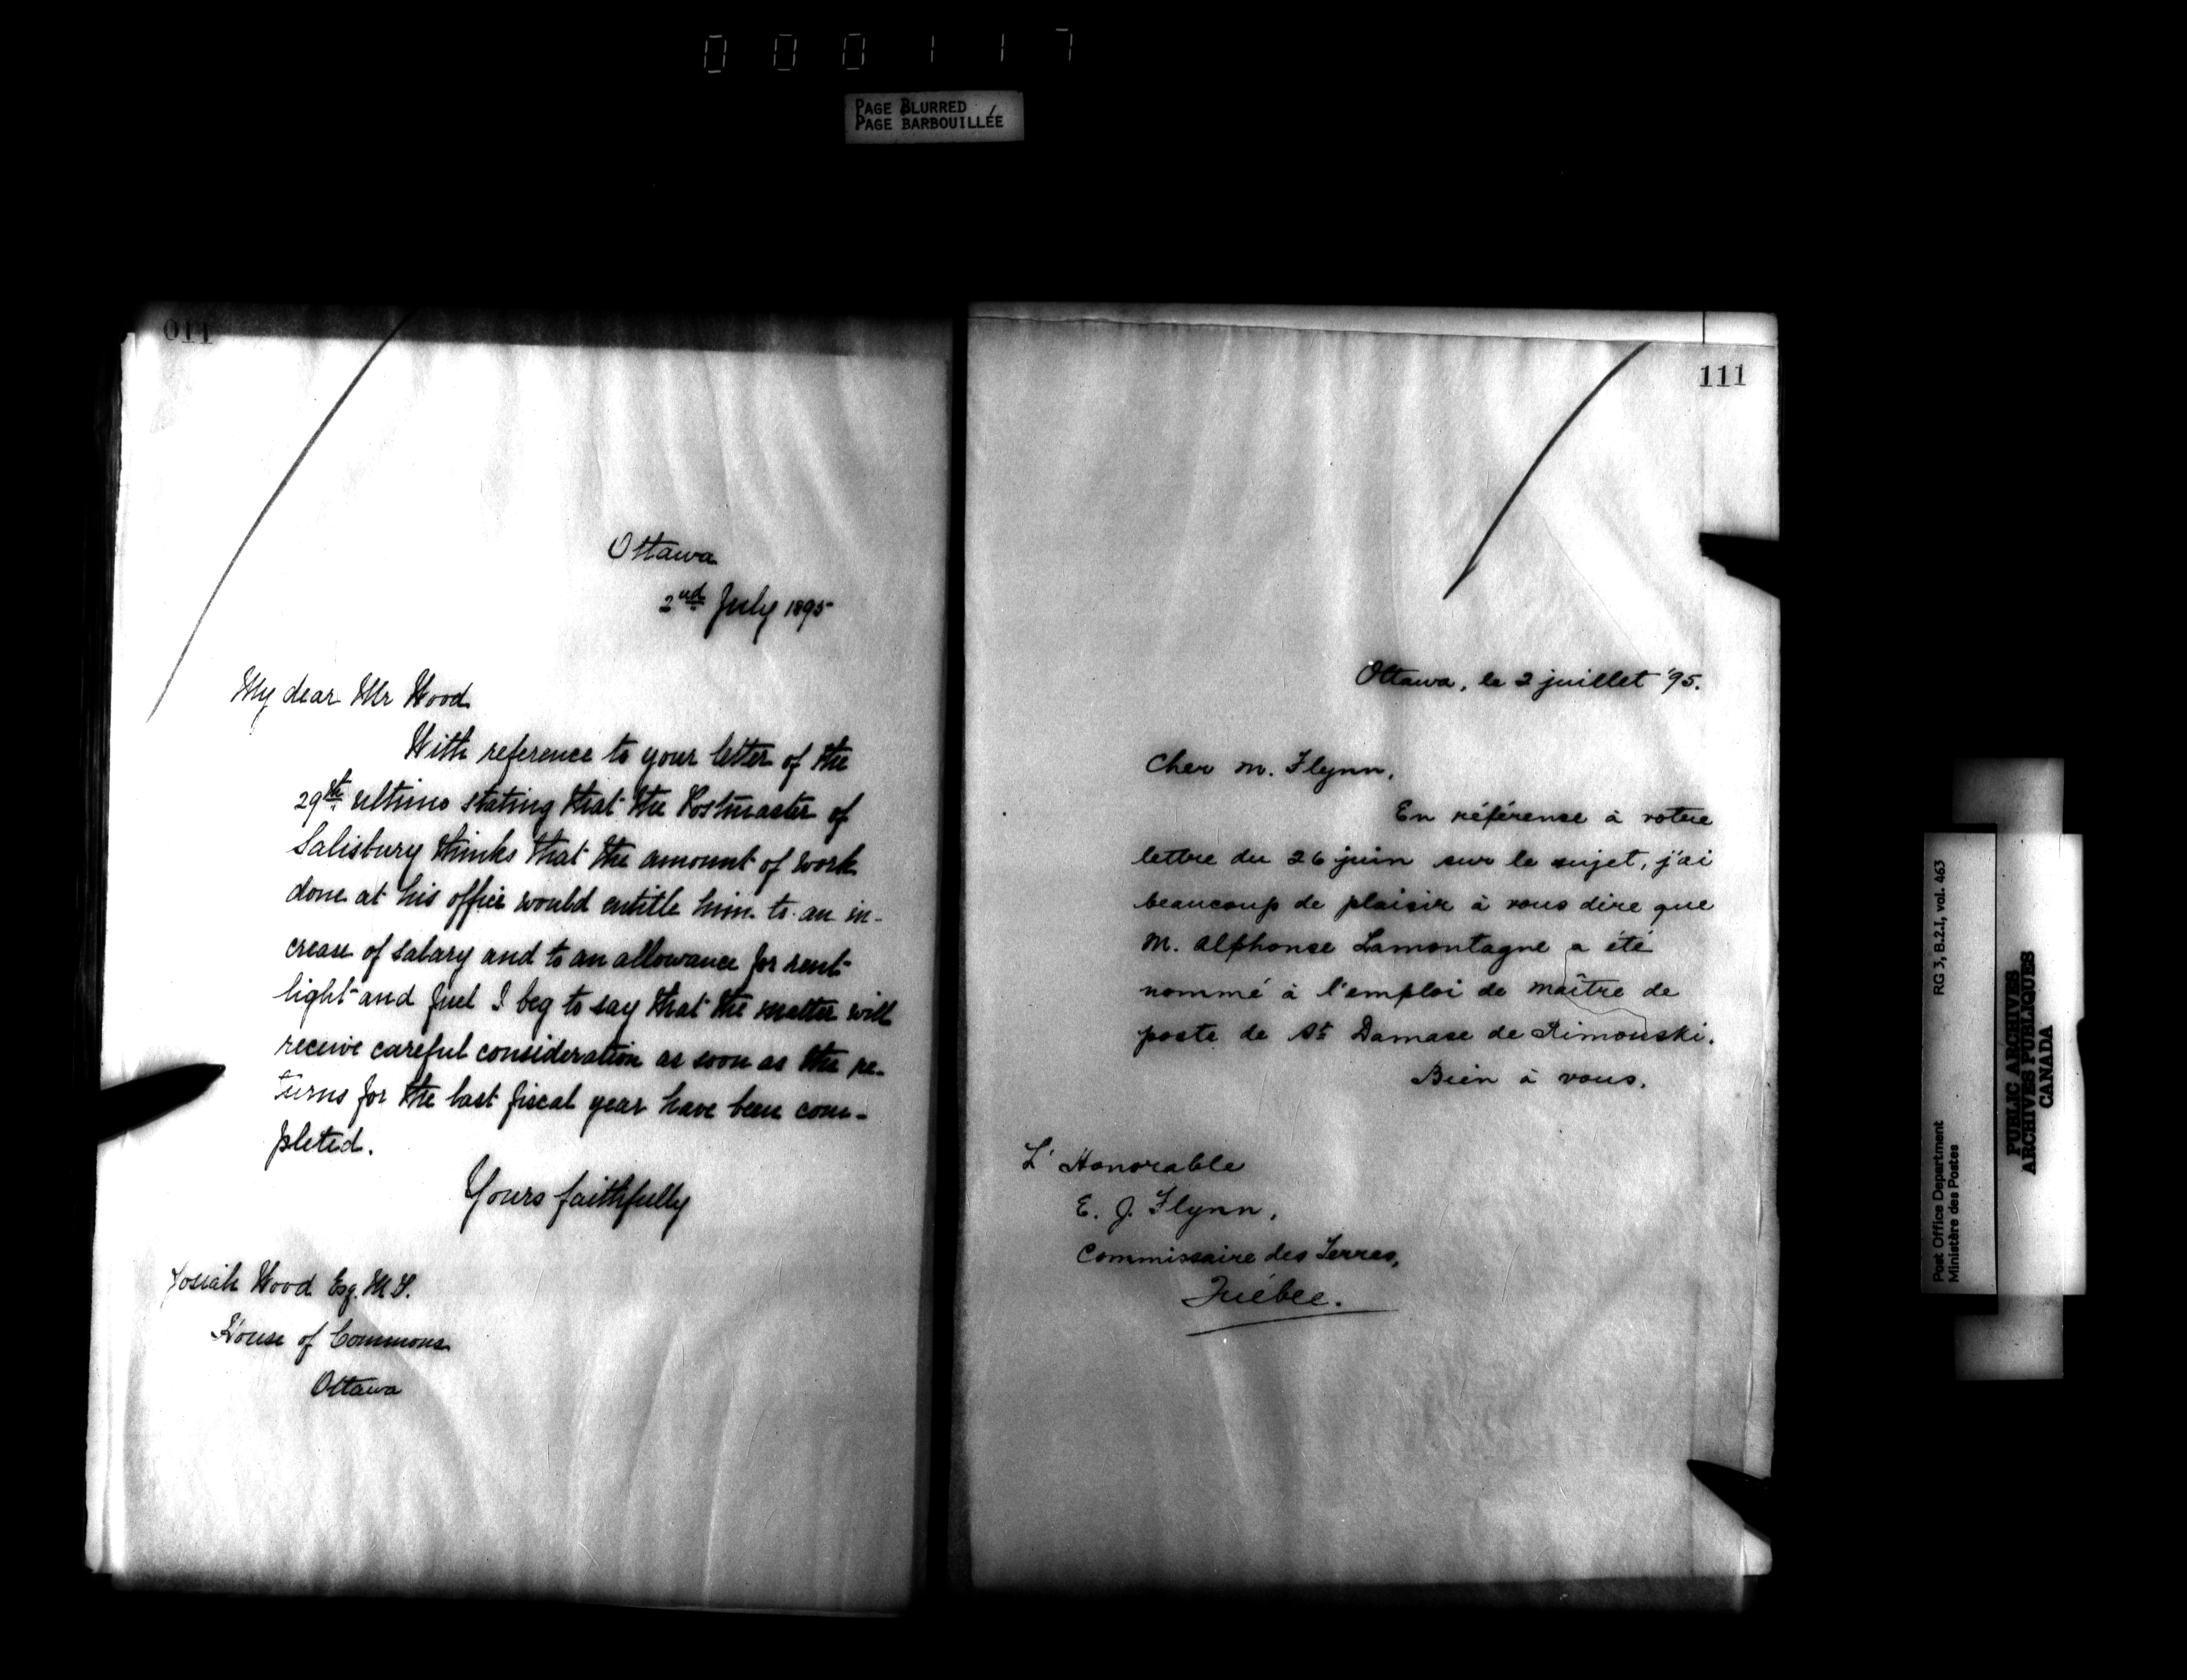 000117
PAGE BLURRED
PAGE BARBOUILLÉE
011
Ottawa
2nd July 1895
My dear Mr Wood
With reference to your letter of the
29th ultimo stating that the Postmaster of
Salisbury thinks that the amount of work
done at his office would entitle him to an in-
crease of salary and to an allowance for rent
light and fuel I beg to say that the matter will
receive careful consideration as soon as the re-
turns for the last fiscal year have been com-
pleted.
Yours faithfully
Josiah Wood Esq. M.P.
House of Commons
Ottawa
111
Ottawa, le 2 juillet '95.
Cher M. Flynn,
En référence à votre
lettre du 26 juin sur le sujet, j'ai
beaucoup de plaisir à vous dire que
M. Alphonse Lamontagne a été
nommé à l'emploi de maître de
poste de St Damase de Rimouski.
Bien à vous,
L'Honorable
E. J. Flynn,
Commissaire des Terres,
Québec.
RG 3, B.2.1, vol. 463
Post Office Department
Ministère des Postes
PUBLIC ARCHIVES
ARCHIVES PUBLIQUES
CANADA